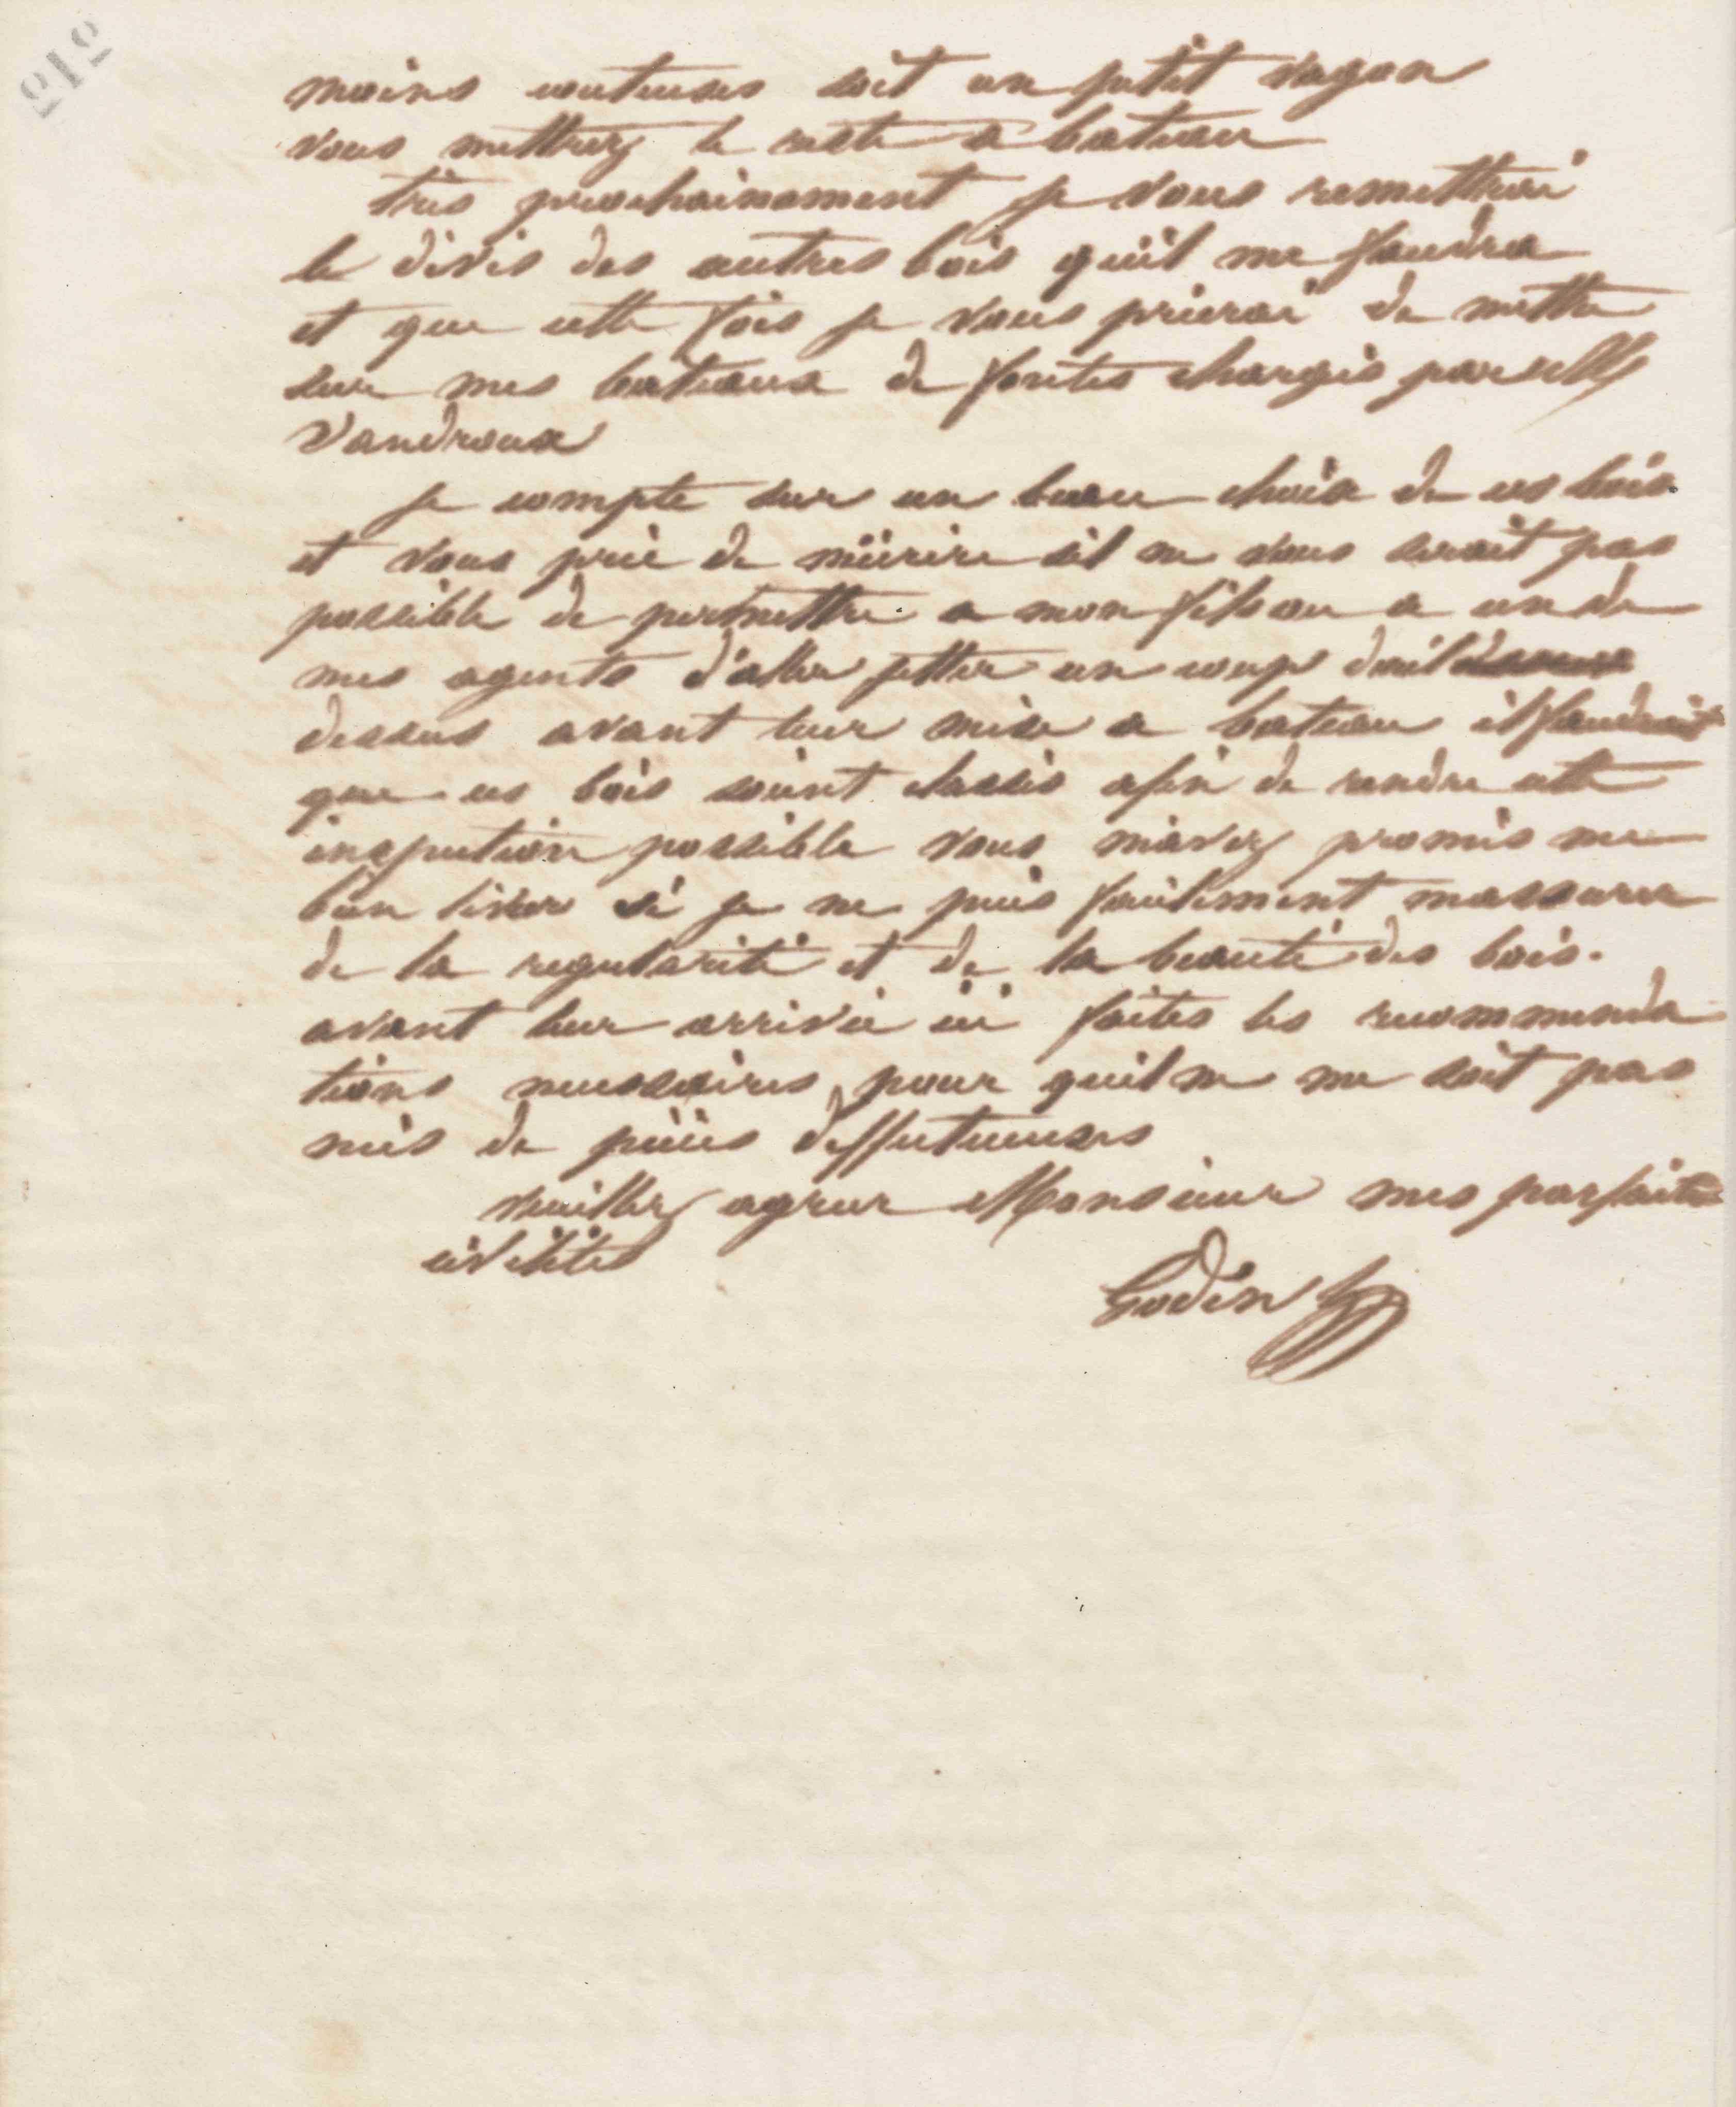 212
moins couteuses soit un petit vagon
vous mettrez le reste a bateau
très prochainement je vous remettrai
le devis des autres bois qu'il me faudra
et que cette fois je vous prierai de mettre
sur mes bateaux de fontes chargés par MM
Vandroux
je compte sur un beau choix de ces bois
et vous prie de m'écrire s'il ne vous serait pas
possible de permettre a mon fils ou a un de
mes agents d'aller jetter un coup d'œil
dessus avant leur mise a bateau il faudrait
que ces bois soient classés afin de rendre cette
inspection possible vous m'avez promis me
bien livrer si je ne puis facilement massurer
de la regularité et de la beauté des bois.
avant leur arrivée ici faites les recommenda
tions necessaires pour quil ne me soit pas
mis de pièces deffectueuses
veuillez agreer Monsieur mes parfaites
civilités
Godin